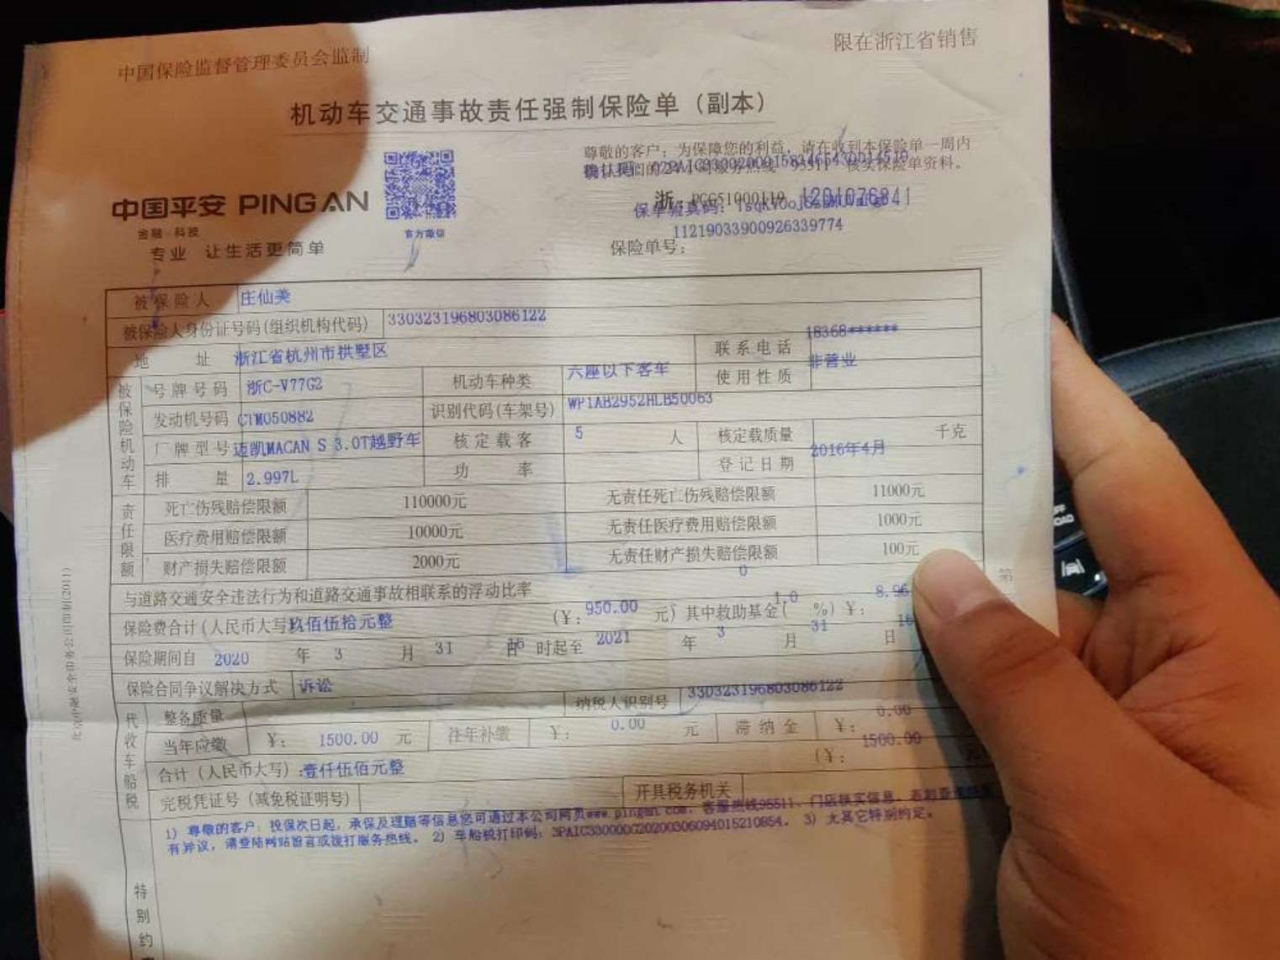 中国保险监督管理委员会监制
限在浙江省销售
机动车交通事故责任强制保险单（副本）
尊敬的客户：为保障您的利益，请在收到本保险单一周内
服务热线 95511 核实保险单资料。
中国平安 PINGAN
金融·科技
专业 让生活更简单
官方微信
浙：
保单验真码：
11219033900926339774
保险单号：
被保险人 庄仙美
被保险人身份证号码(组织机构代码) 330323196803086122
地 址 浙江省杭州市拱墅区 联系电话 18368******
被保险机动车
号牌号码 浙C-V77G2 机动车种类 六座以下客车 使用性质 非营业
发动机号码 CTM050882 识别代码(车架号) WP1AB2952HLB50063
厂牌型号 迈凯MACAN S 3.0T越野车 核定载客 5 人 核定载质量 千克
排 量 2.997L 功 率 登记日期 2016年4月
责任限额
死亡伤残赔偿限额 110000元 无责任死亡伤残赔偿限额 11000元
医疗费用赔偿限额 10000元 无责任医疗费用赔偿限额 1000元
财产损失赔偿限额 2000元 无责任财产损失赔偿限额 100元
与道路交通安全违法行为和道路交通事故相联系的浮动比率 0
保险费合计(人民币大写) 玖佰伍拾元整 (￥：950.00 元) 其中救助基金( 1.0 %) ￥： 8.96
保险期间自 2020 年 3 月 31 时起至 2021 年 3 月 31 日
保险合同争议解决方式 诉讼
代收车船税
整备质量 纳税人识别号 330323196803086122
当年应缴 ￥： 1500.00 元 往年补缴 ￥： 0.00 元 滞纳金 ￥： 0.00
合计（人民币大写）:壹仟伍佰元整 (￥： 1500.00 元
完税凭证号（减免税证明号） 开具税务机关
1) 尊敬的客户：投保次日起，承保及理赔等信息您可通过本公司网页www.pingan.com、客服热线95511、门店核实信息，
有异议，请登陆网站留言或拨打服务热线。 2) 车船税打印码：3PAIC330000G20200306094015210854. 3) 无其它特别约定。
特别约
第